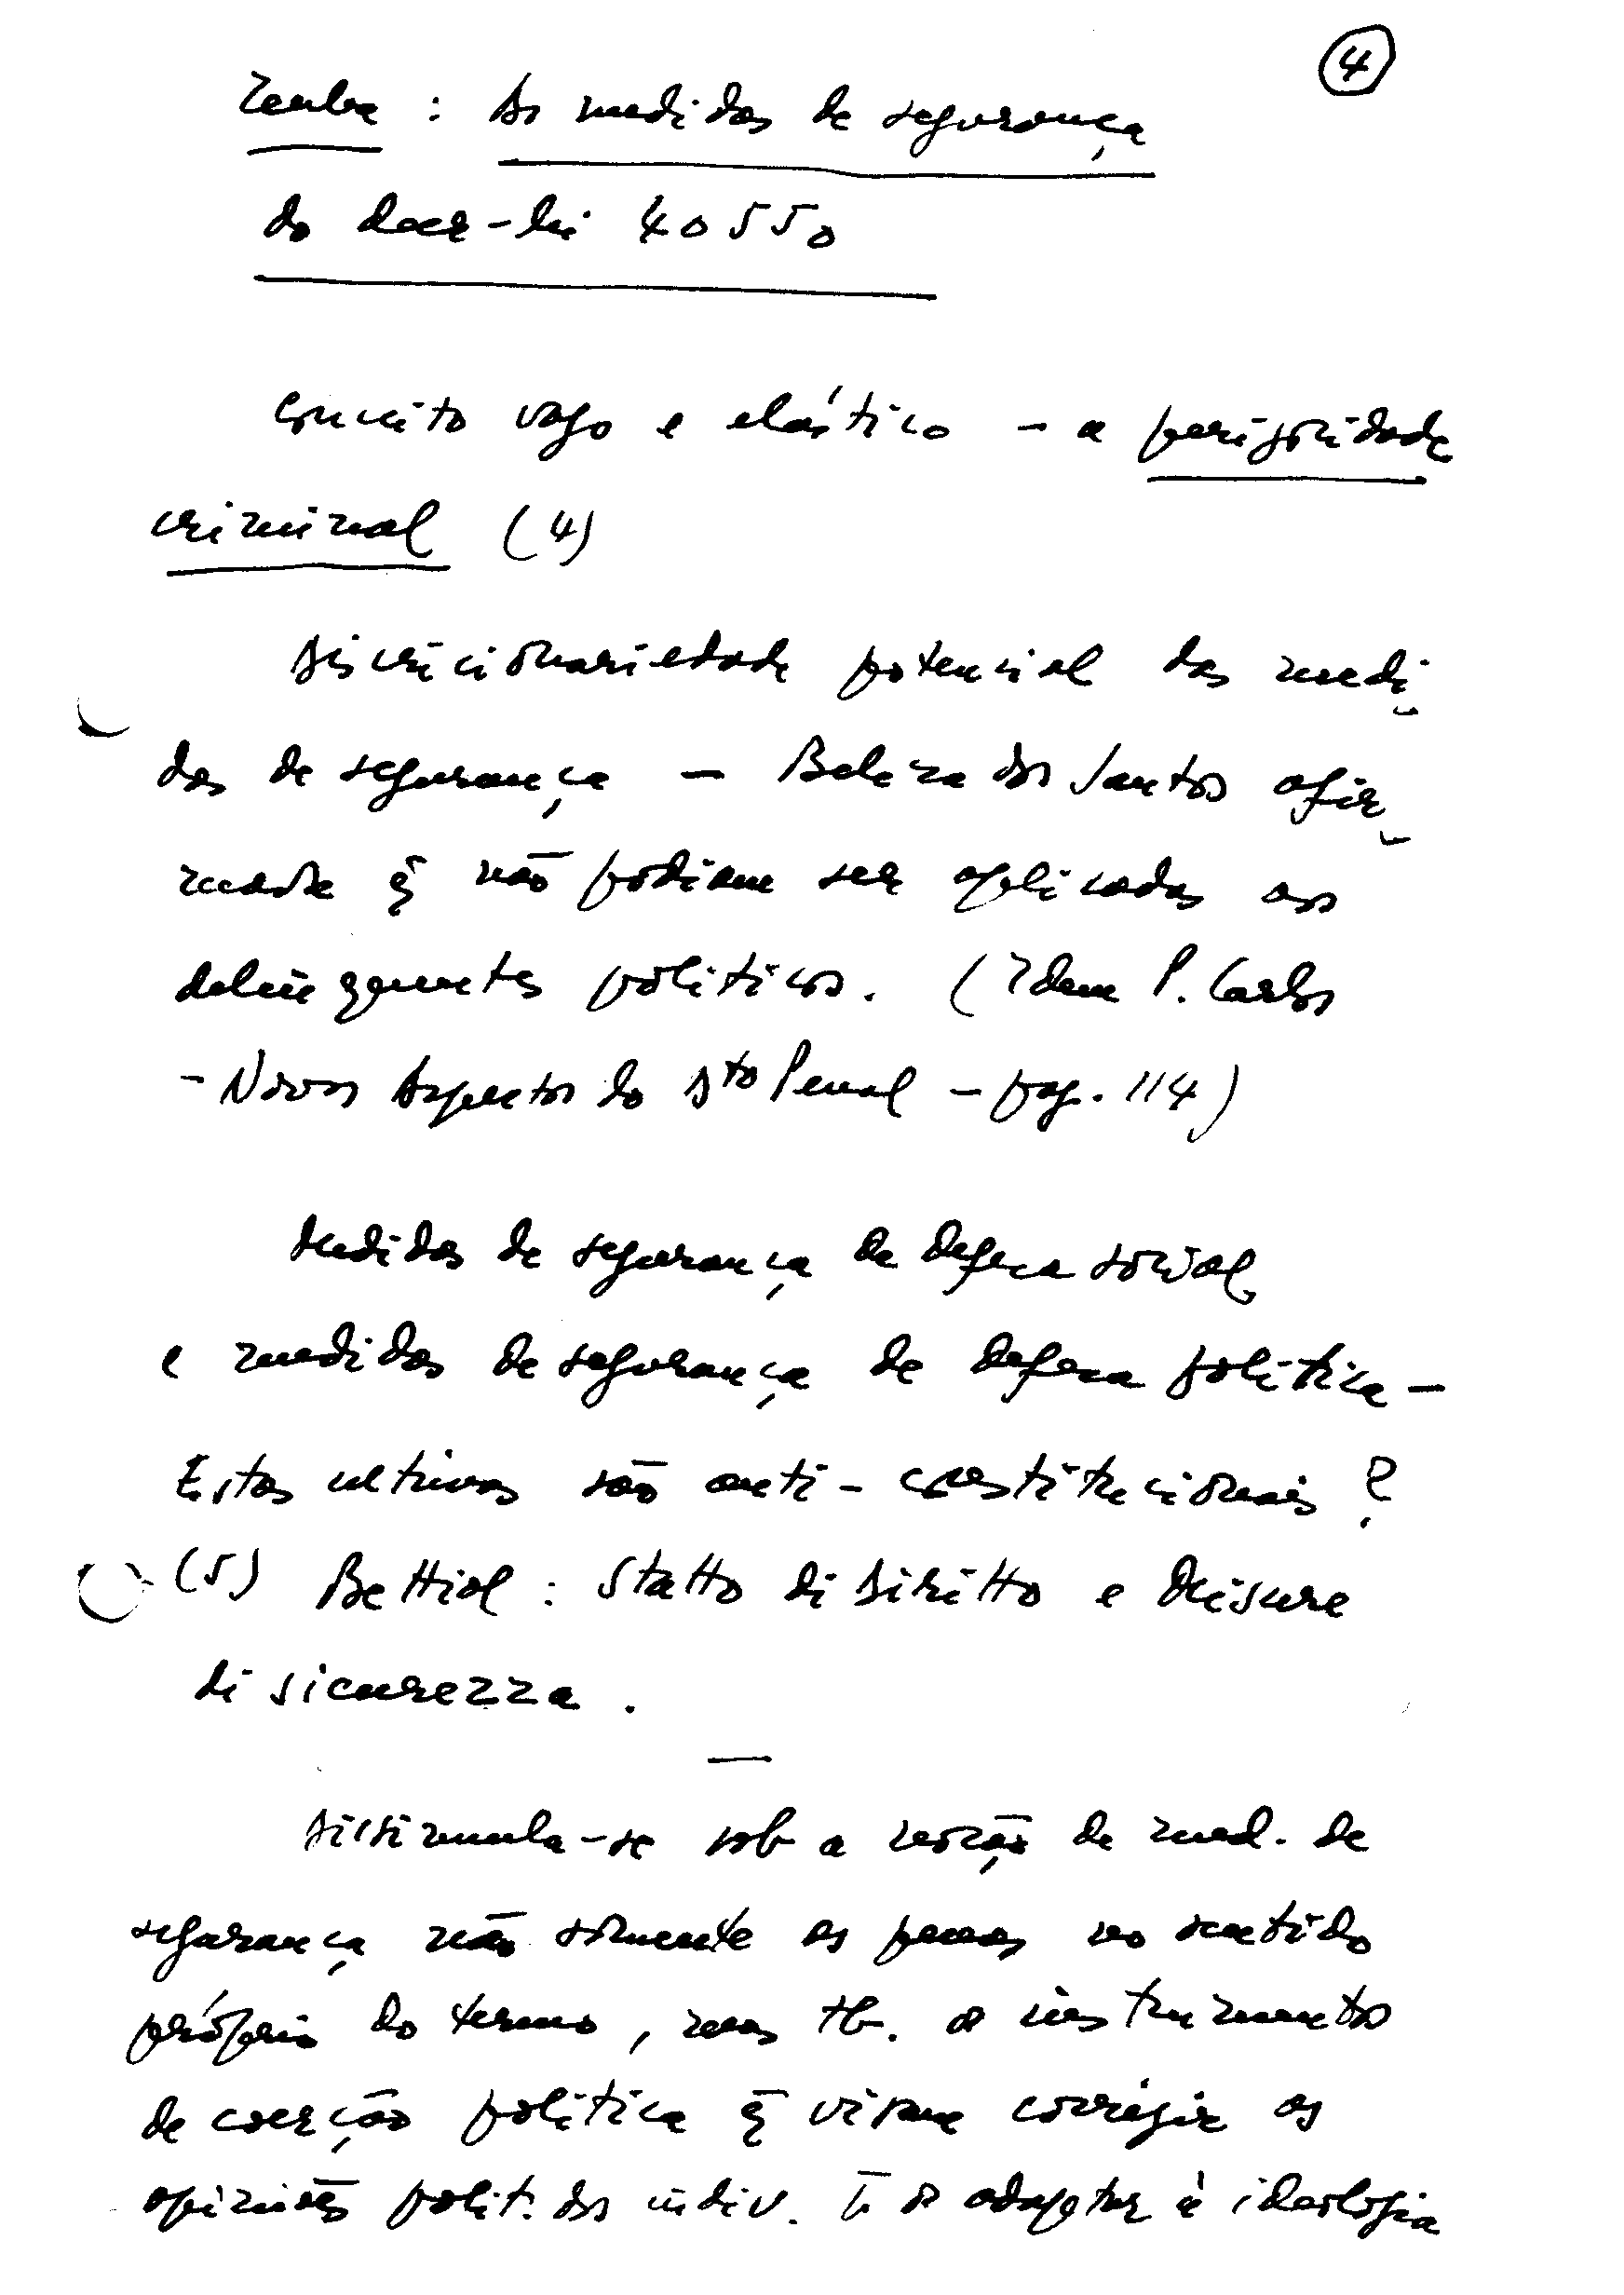 ④
Tema : As medidas de segurança
do decr-lei 40550
Conceito vago e elástico - a perigosidade
criminal (4)
Discricionariedade potencial das medi-
das de segurança - Beleza dos Santos afir-
mava q̃ não podiam ser aplicadas aos
delinquentes politicos. (Idem P. Carlos
- Novos Aspectos do Dto Penal - pag. 114)
Medidas de segurança de defesa social
e medidas de segurança de defesa politica -
Estas ultimas são anti-constitucionais ?
(5) Bettiol : Statto di Diritto e Misure
di sicurezza .
Dissimula-se sob a versão de med. de
segurança não somente as penas no sentido
próprio do termo, mas tb. os instrumentos
de coerção politica q̃ visam corrigir as
opiniões polit. dos indiv. os adaptar à ideologia